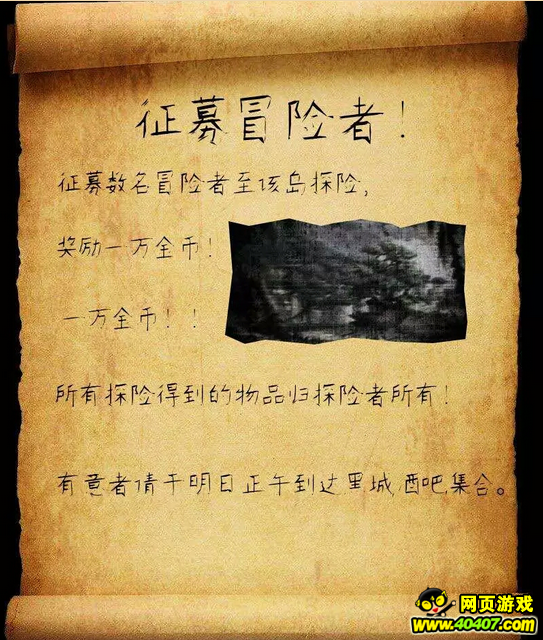 征募冒险者！
征募数名冒险者至该岛探险，
奖励一万金币！
一万金币！！
所有探险得到的物品归探险者所有！
有意者请于明日正午到达黑城酒吧集合。
网页游戏
www.40407.com